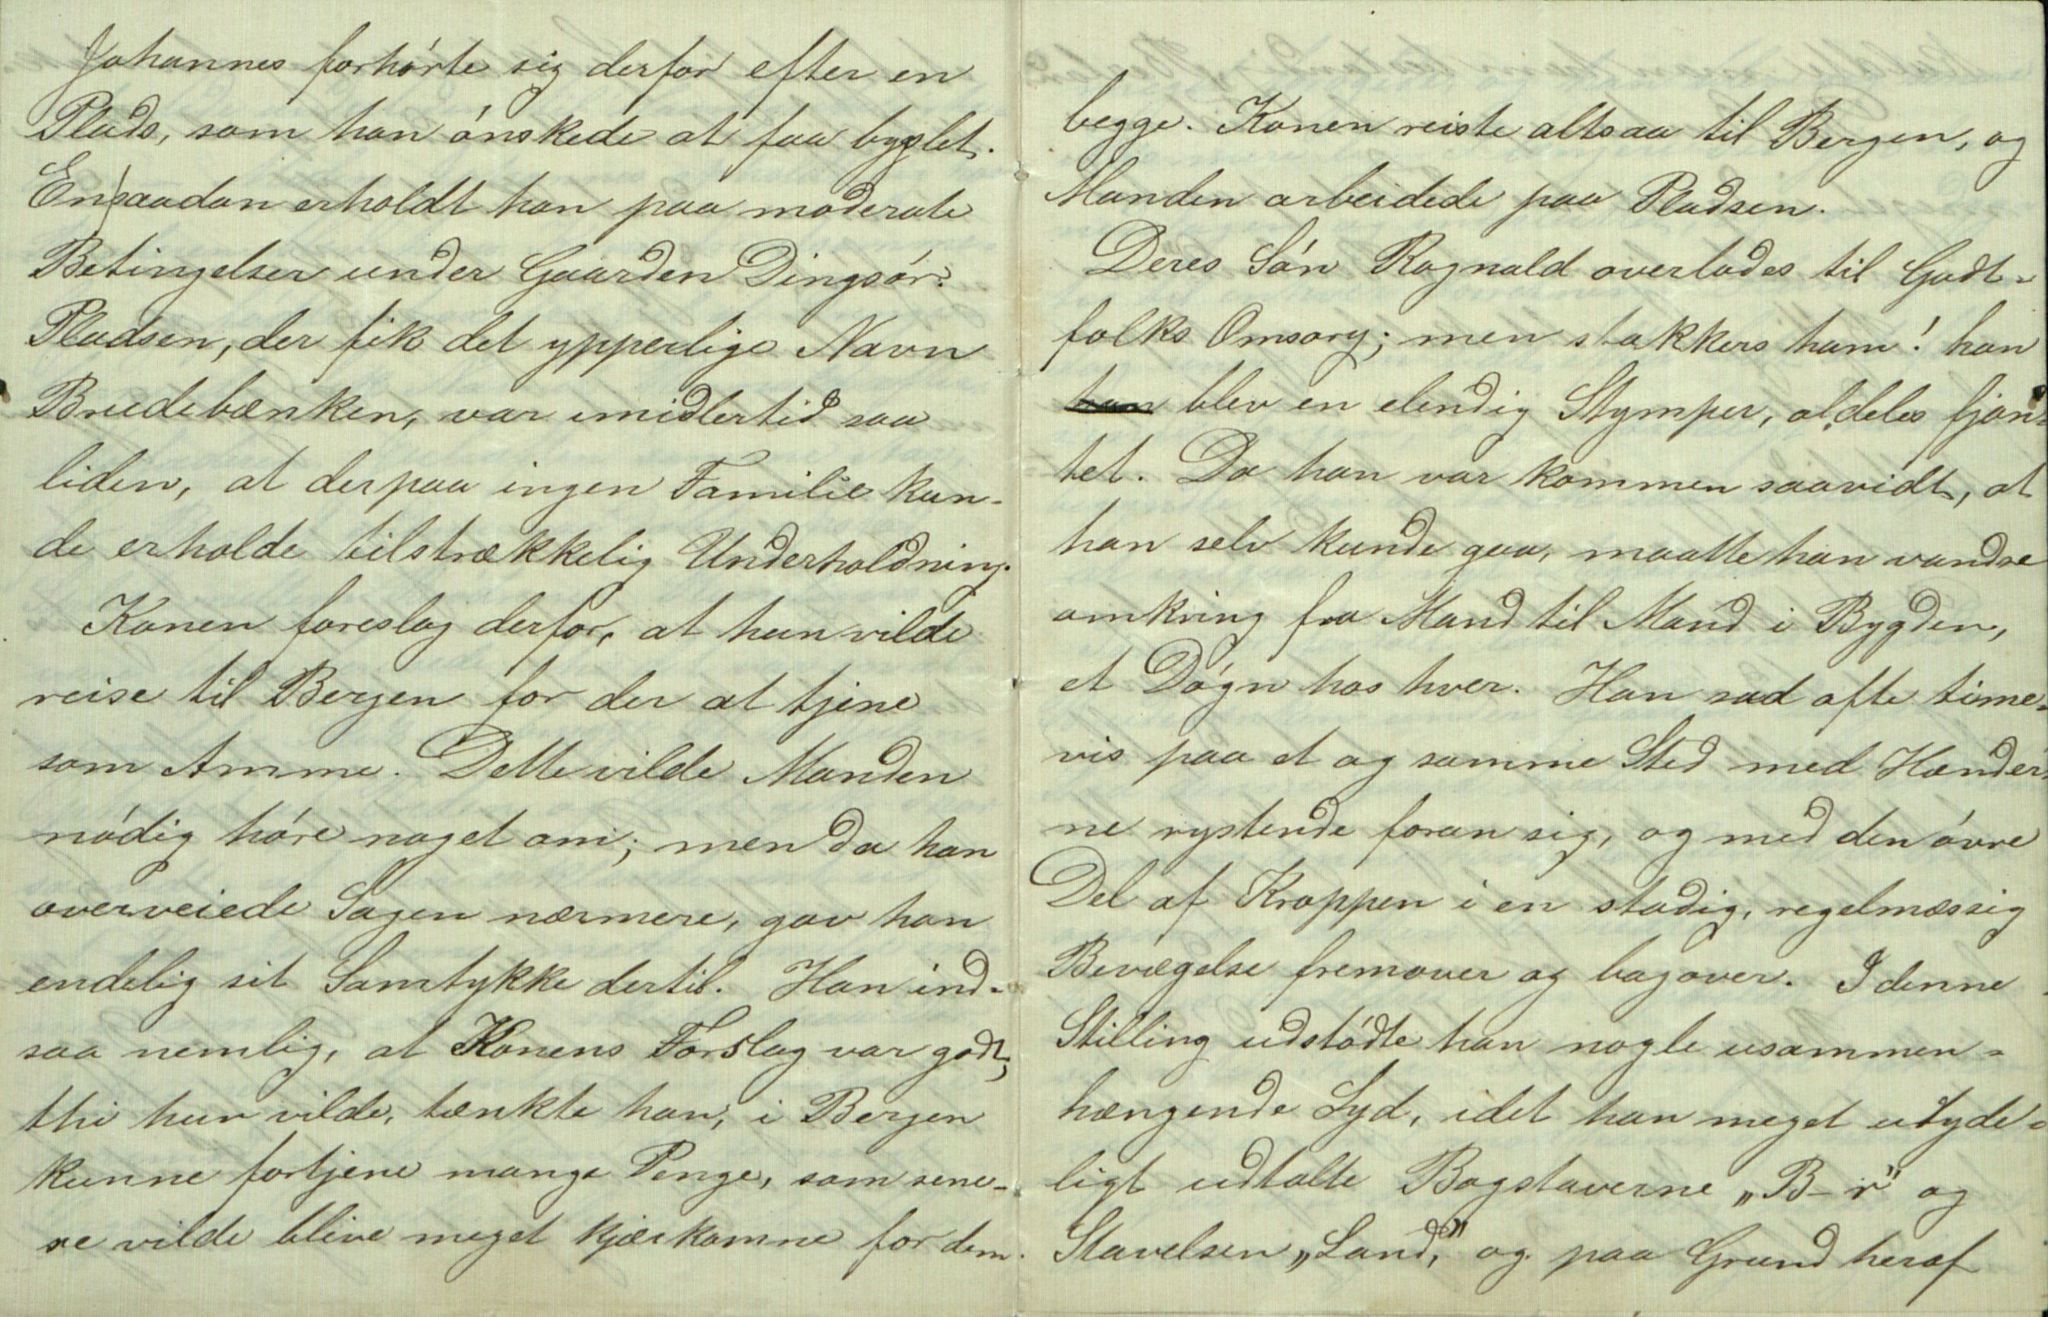 Johannes forhórte sig derfor efter en
Plads, som han ónskede at faa byglet.
En saadan erholdt han paa moderate
Betingelser under Gaarden Dingsór.
Pladsen, der fik det ypperlige Navn
Brudebænken, var imidlertid saa
liden, at derpaa ingen Familie kun-
de erholde tilstrækkelig Underholdning.
Konen foreslog derfor, at hun vilde
reise til Bergen for der at tjene
som Amme. Dette vilde Manden
nódig hóre noget om; men da han
overveiede Sagen nærmere, gav han
endelig sit Samtykke dertil. Han ind-
saa nemlig, at Konens Forslag var godt;
thi hun vilde, tænkte han, i Bergen
kunne fortjene mange Penge, som sene-
re vilde blive meget kjærkomne for dem
begge. Konen reiste altsaa til Bergen, og
Manden arbeidede paa Pladsen.
Deres Són Ragnald overlodes til Godt-
folks Omsorg; men stakkers ham! han
han blev en elendig Stymper, aldeles fjan-
tet. Da han var kommen saavidt, at
han selv kunde gaa, maatte han vandre
omkring fra Mand til Mand i Bygden,
et Dógn hos hver. Han sad ofte time-
vis paa et og samme Sted med Hænder-
ne rystende foran sig, og med den óvre
Del af Kroppen i en stadig, regelmæssig
Bevægelse fremover og bagover. I denne
Stilling udstódte han nogle usammen-
hængende Lyd, idet han meget utyde-
ligt udtalte Bogstaverne „B-r" og
Stavelsen „Land," og paa Grund heraf